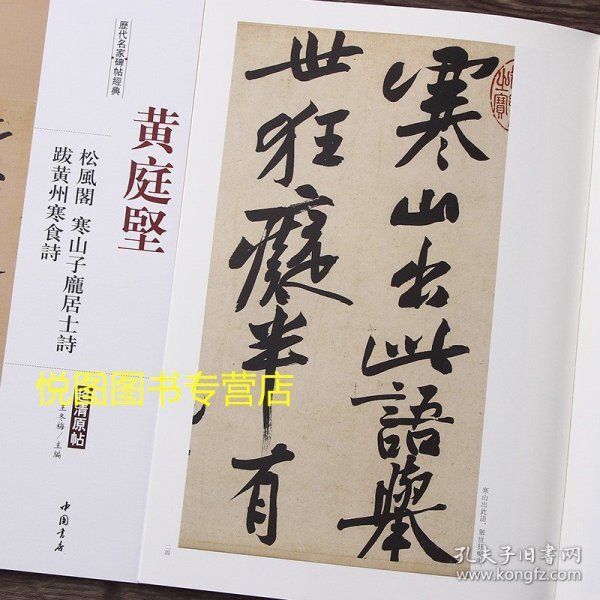 歷代名家碑帖經典
黄庭堅
松風閣 寒山子龐居士詩
跋黄州寒食詩
超清原帖
王冬梅/主編
中国書店
寒山出此語舉
世狂癡半有
之寶
寒山出此語，舉世
二四
悦图图书专营店
孔夫子旧书网
www.kongfz.com